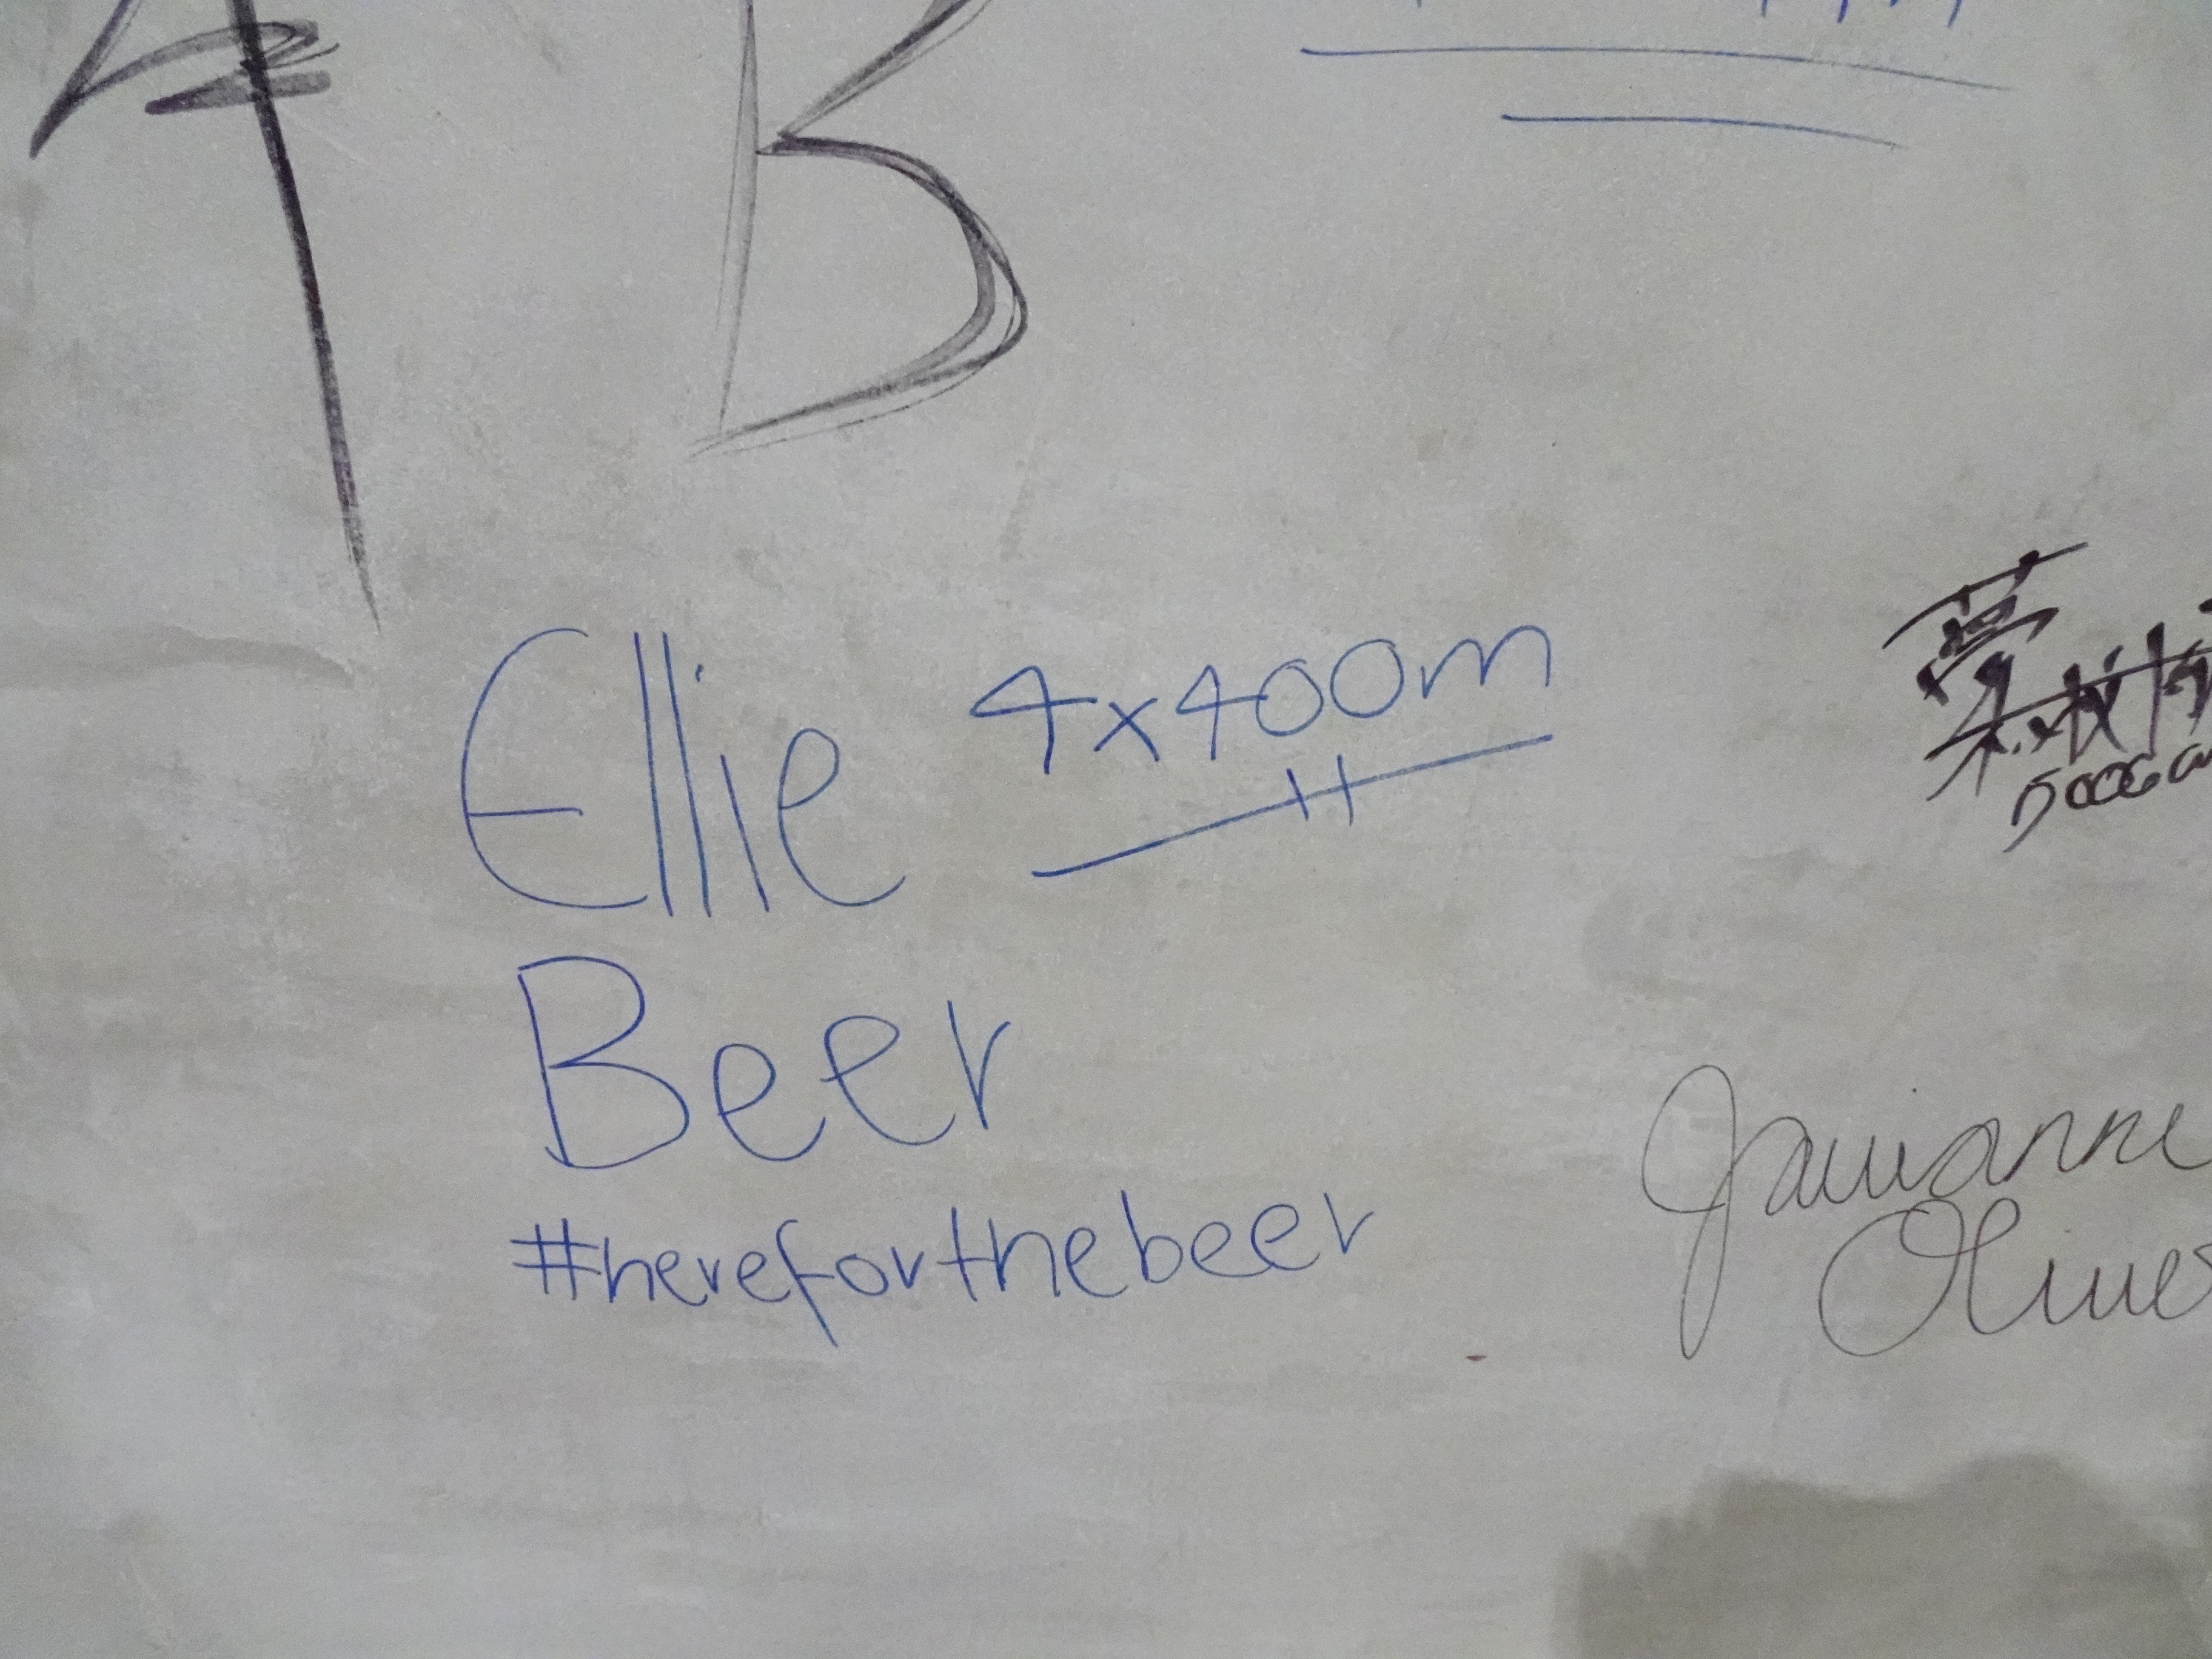 4 B
Ellie 4x400m
Beer
#hereforthebeer
Javianne
Oliver